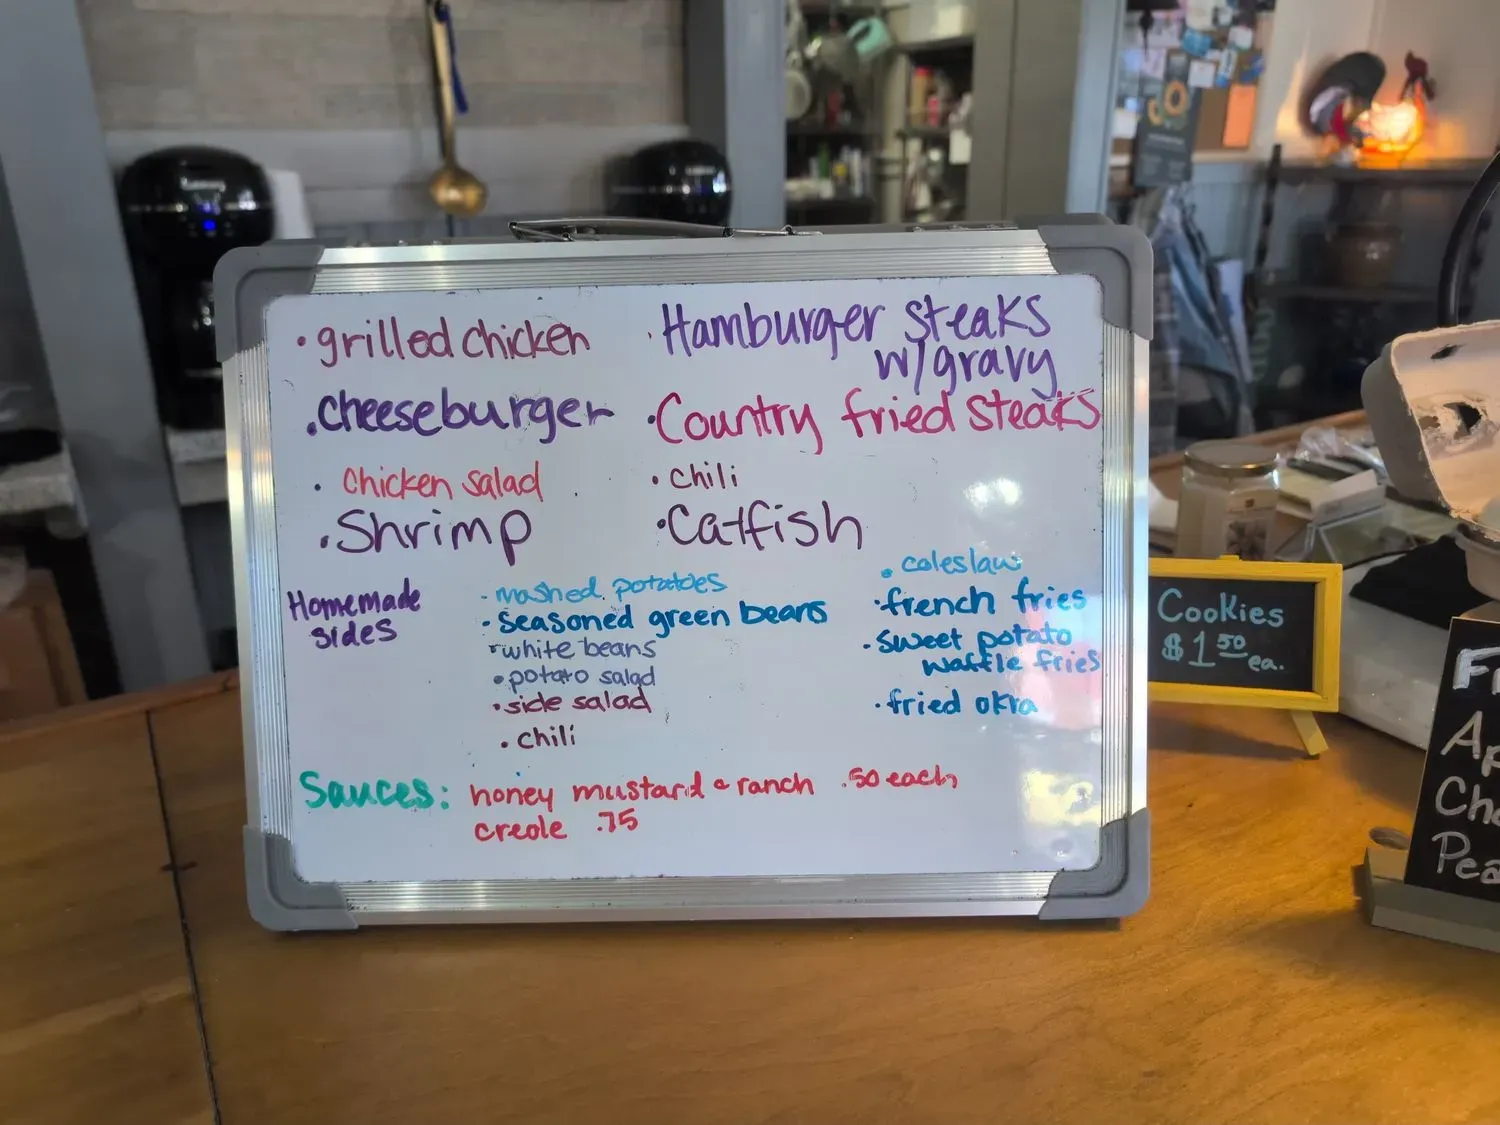 · grilled chicken
· cheeseburger
· chicken salad
· Shrimp
· Hamburger steaks
w/gravy
· Country fried steaks
· chili
· Catfish
Homemade
sides
· mashed potatoes
· seasoned green beans
· white beans
· potato salad
· side salad
· chili
· coleslaw
· french fries
· sweet potato
waffle fries
· fried okra
Sauces: honey mustard & ranch .50 each,
creole .75
Cookies
$1.50 ea.